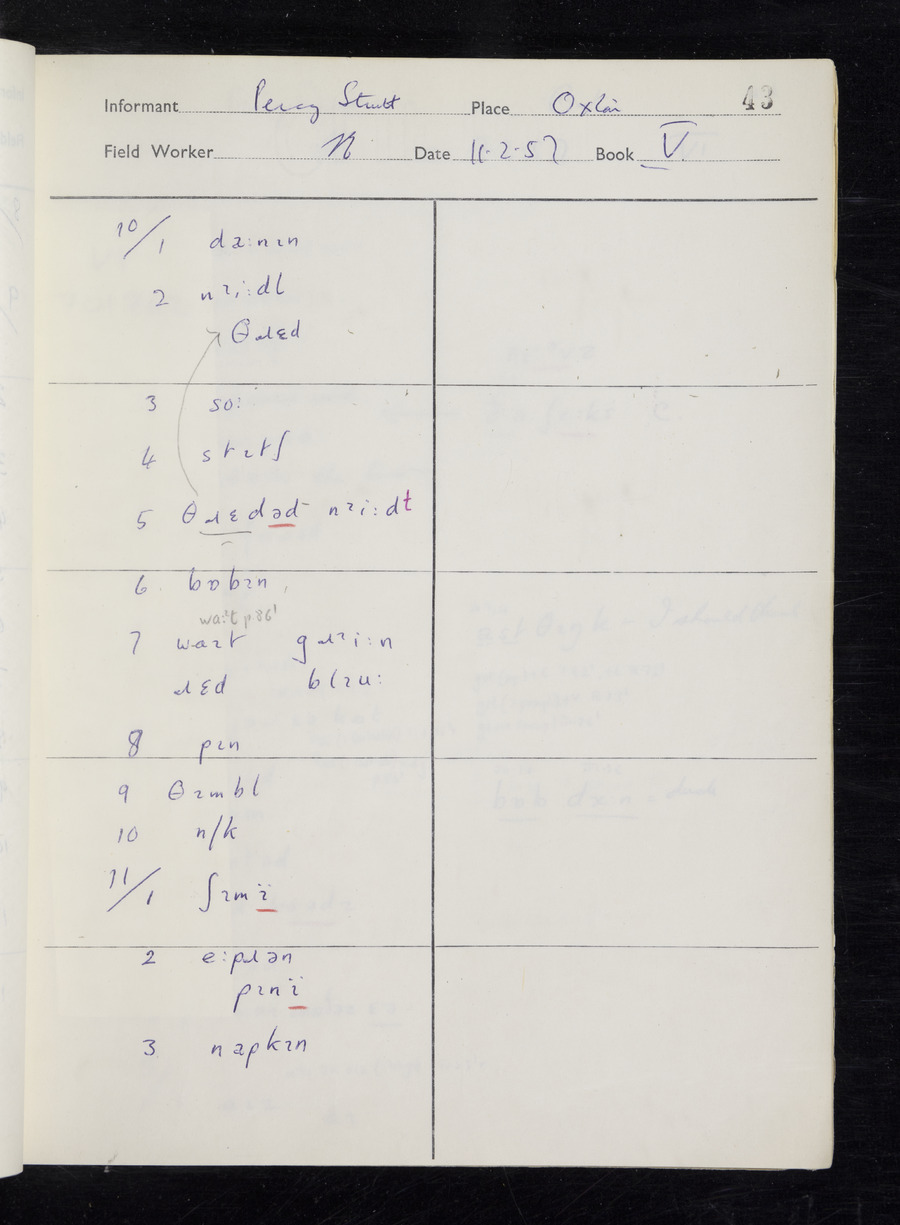 Informant Percy Strutt Place Oxlin 43
Field Worker N Date 11-2-57 Book V.
10/1 dæ:nɪn
2 nɪi:dl
θɹɛd
3 so:
4 stɪtʃ
5 θɹɛdəd nɪi:dt
6. bɒbɪn
7 waɪt gɹɪi:n
ɹɛd blɪu:
8 pɪn
9 θɪmbl
10 n/k
11/1 ʃɪmï
2 e:pɹən
pɪnï
3. næpkɪn